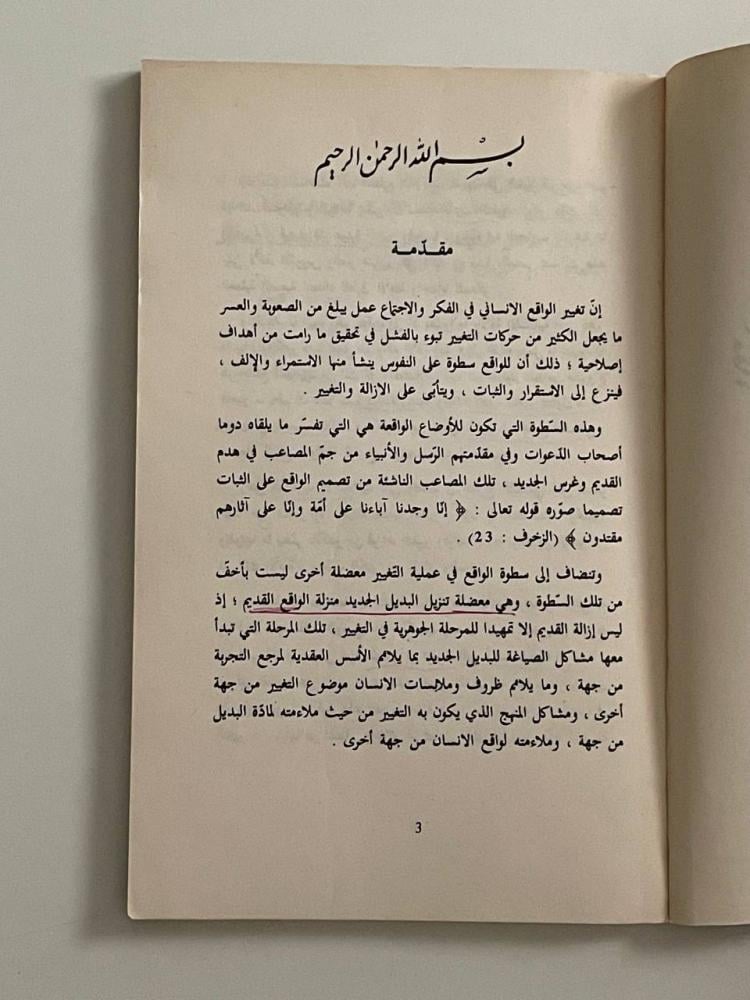 بسم الله الرحمٰن الرحيم
مقدّمة
إنّ تغيير الواقع الانساني في الفكر والاجتماع عمل يبلغ من الصعوبة والعسر
ما يجعل الكثير من حركات التغيير تبوء بالفشل في تحقيق ما رامت من أهداف
إصلاحية ؛ ذلك أن للواقع سطوة على النفوس ينشأ منها الاستمراء والإلف ،
فينزع إلى الاستقرار والثبات ، ويتأبّى على الازالة والتغيير .
وهذه السّطوة التي تكون للأوضاع الواقعة هي التي تفسّر ما يلقاه دوما
أصحاب الدّعوات وفي مقدّمتهم الرّسل والأنبياء من جمّ المصاعب في هدم
القديم وغرس الجديد ، تلك المصاعب الناشئة من تصميم الواقع على الثبات
تصميما صوّره قوله تعالى : ﴿ إنّا وجدنا آباءنا على أمّة وإنّا على آثارهم
مقتدون ﴾ (الزخرف : 23) .
وتنضاف إلى سطوة الواقع في عملية التّغيير معضلة أخرى ليست بأخفّ
من تلك السّطوة ، وهي معضلة تنزيل البديل الجديد منزلة الواقع القديم ؛ إذ
ليس إزالة القديم إلا تمهيدا للمرحلة الجوهرية في التغيير ، تلك المرحلة التي تبدأ
معها مشاكل الصياغة للبديل الجديد بما يلائم الأسس العقدية لمرجع التجربة
من جهة ، وما يلائم ظروف وملابسات الانسان موضوع التغيير من جهة
أخرى ، ومشاكل المنهج الذي يكون به التغيير من حيث ملاءمته لمادّة البديل
من جهة ، وملاءمته لواقع الانسان من جهة أخرى .
3